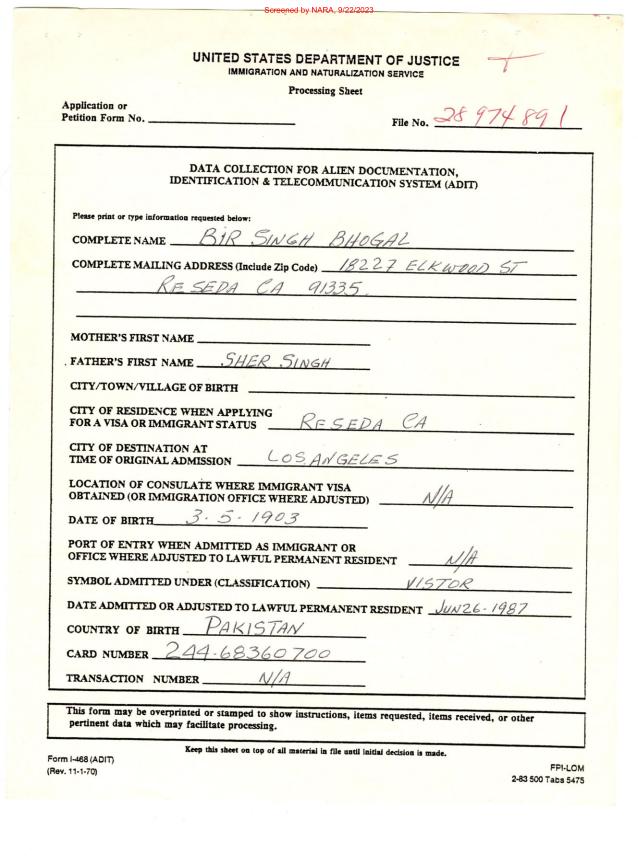 Screened by NARA, 9/22/2023
UNITED STATES DEPARTMENT OF JUSTICE
IMMIGRATION AND NATURALIZATION SERVICE
Processing Sheet
Application or
Petition Form No.
File No. 28 974 891
DATA COLLECTION FOR ALIEN DOCUMENTATION,
IDENTIFICATION & TELECOMMUNICATION SYSTEM (ADIT)
Please print or type information requested below:
COMPLETE NAME BIR SINGH BHOGAL
COMPLETE MAILING ADDRESS (Include Zip Code) 18227 ELKWOOD ST
RESEDA CA 91335
MOTHER'S FIRST NAME
FATHER'S FIRST NAME SHER SINGH
CITY/TOWN/VILLAGE OF BIRTH
CITY OF RESIDENCE WHEN APPLYING
FOR A VISA OR IMMIGRANT STATUS RESEDA CA
CITY OF DESTINATION AT
TIME OF ORIGINAL ADMISSION LOS ANGELES
LOCATION OF CONSULATE WHERE IMMIGRANT VISA
OBTAINED (OR IMMIGRATION OFFICE WHERE ADJUSTED) N/A
DATE OF BIRTH 3-5-1903
PORT OF ENTRY WHEN ADMITTED AS IMMIGRANT OR
OFFICE WHERE ADJUSTED TO LAWFUL PERMANENT RESIDENT N/A
SYMBOL ADMITTED UNDER (CLASSIFICATION) VISTOR
DATE ADMITTED OR ADJUSTED TO LAWFUL PERMANENT RESIDENT JUN 26-1987
COUNTRY OF BIRTH PAKISTAN
CARD NUMBER 244-68360700
TRANSACTION NUMBER N/A
This form may be overprinted or stamped to show instructions, items requested, items received, or other
pertinent data which may facilitate processing.
Keep this sheet on top of all material in file until initial decision is made.
Form I-468 (ADIT)
(Rev. 11-1-70)
FPI-LOM
2-83 500 Tabs 5475